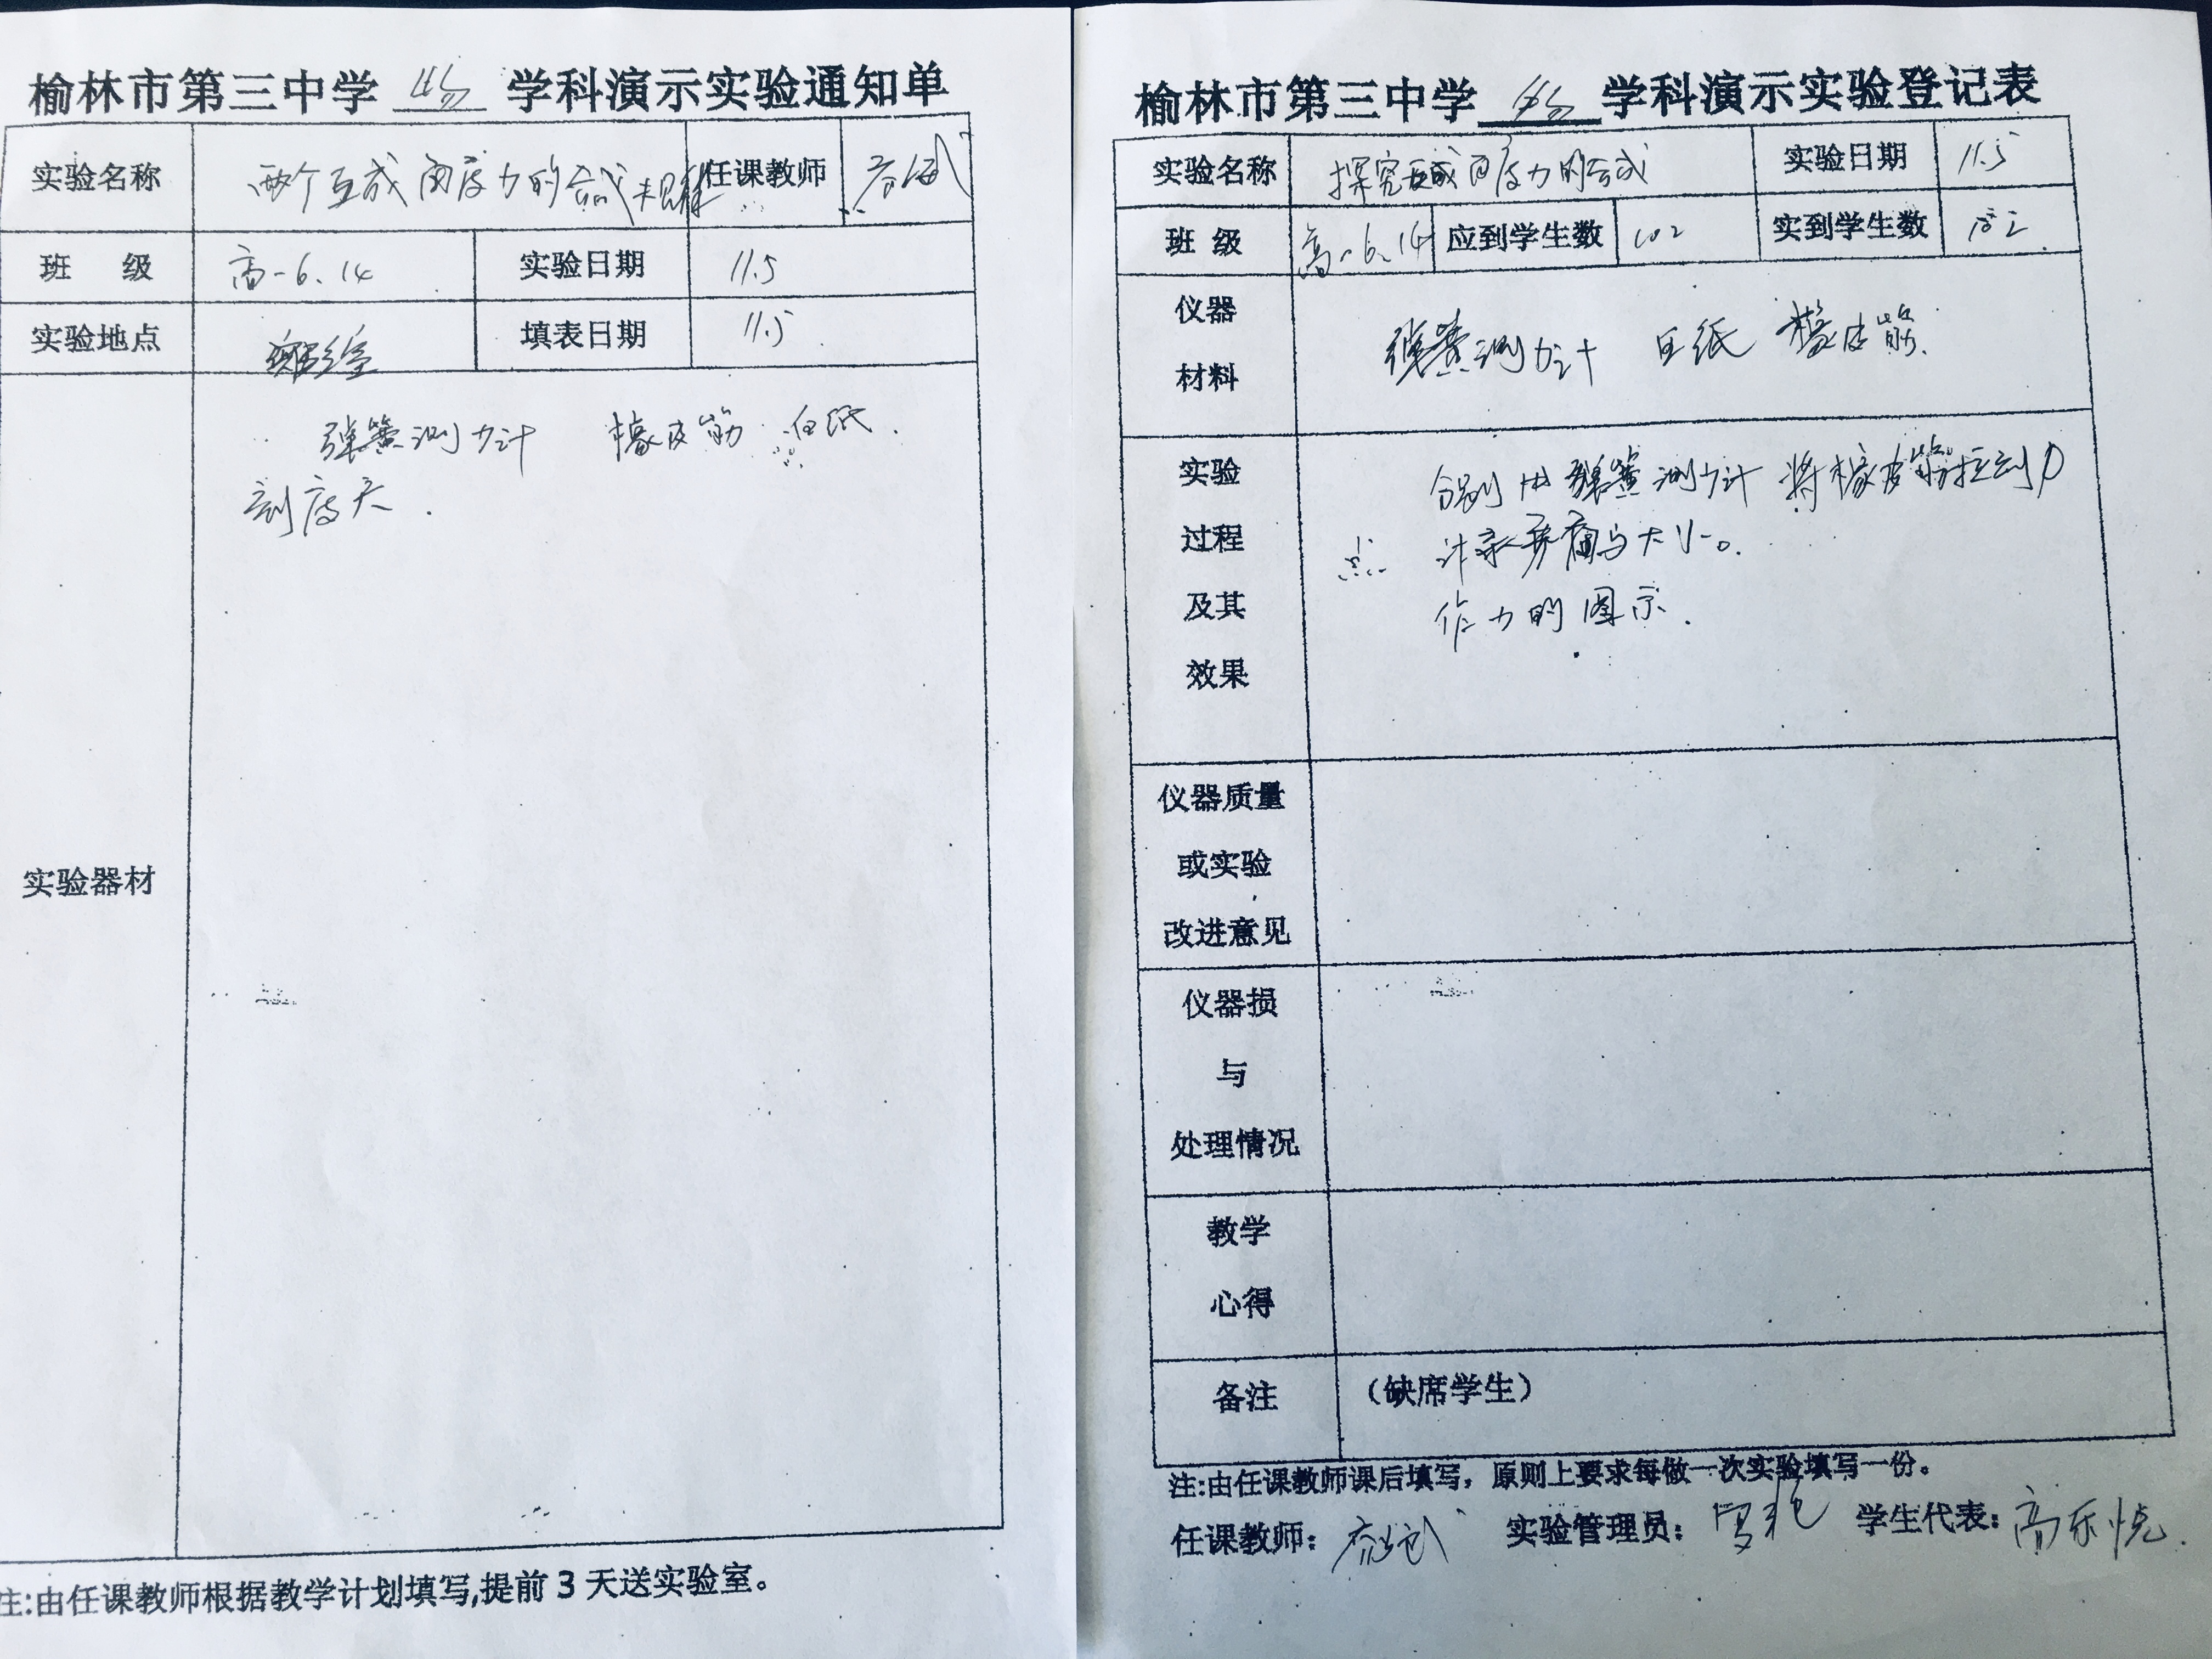 榆林市第三中学 物 学科演示实验通知单
实验名称 两个互成角度力的合成规律 任课教师
班 级 高一6、14 实验日期 11.5
实验地点 填表日期 11.5
实验器材
弹簧测力计 橡皮筋 白纸.
刻度尺.
注:由任课教师根据教学计划填写,提前3天送实验室。
榆林市第三中学 物 学科演示实验登记表
实验名称 探究互成角度力的合成 实验日期 11.5
班 级 高一6、14 应到学生数 102 实到学生数
仪器
材料
弹簧测力计 白纸 橡皮筋.
实验
过程
及其
效果
分别用弹簧测力计将橡皮筋拉到O
点 大小。
作力的图示.
仪器质量
或实验
改进意见
仪器损
与
处理情况
教学
心得
备注 (缺席学生)
注:由任课教师课后填写，原则上要求每做一次实验填写一份。
任课教师: 实验管理员: 学生代表: 高乐悦.